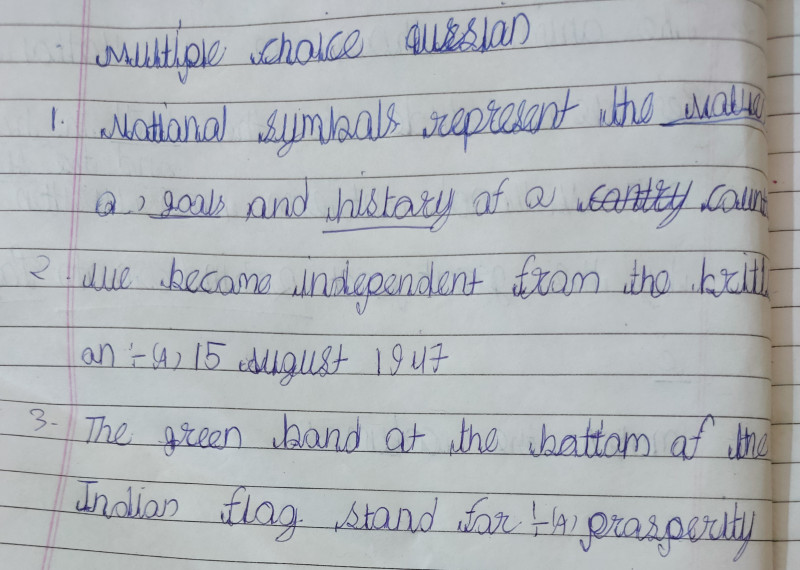 Multiple choice quession
1. National symbols represent the value
a) goals and history of a contry count
2. We became independent from the briti
on :- (A) 15 August 1947
3. The green band at the bottom of the
Indian flag stand for :- (A) prosperity